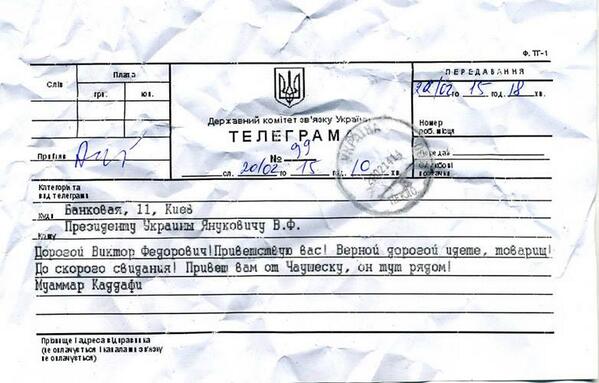 Ф. ТГ-1
ПЕРЕДАВАННЯ
Слів
Плата
грн.
коп.
20/02 го 15 год. 18 хв.
Державний комітет зв'язку України
ТЕЛЕГРАМА
Номер
роб. місця
№ 99
УКРАЇНА
Прийняв
Передав
сл. 20/02 го 15 год. 10 хв.
Службові
Категорія та
від телеграми
Куди Банковая, 11, Киев
Кому Президенту Украины Януковичу В.Ф.
Дорогой Виктор Федорович!Приветствую вас! Верной дорогой идете, товарищ!
До скорого свидания! Привет вам от Чаушеску, он тут рядом!
Муаммар Каддафи
Прізвище і адреса відправника
(не оплачується і каналами зв'язку
не оплачується)